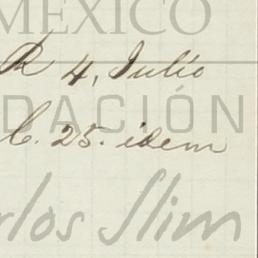 MÉXICO
R 4, Julio
DACIÓN
C. 25. idem
rlos Slim